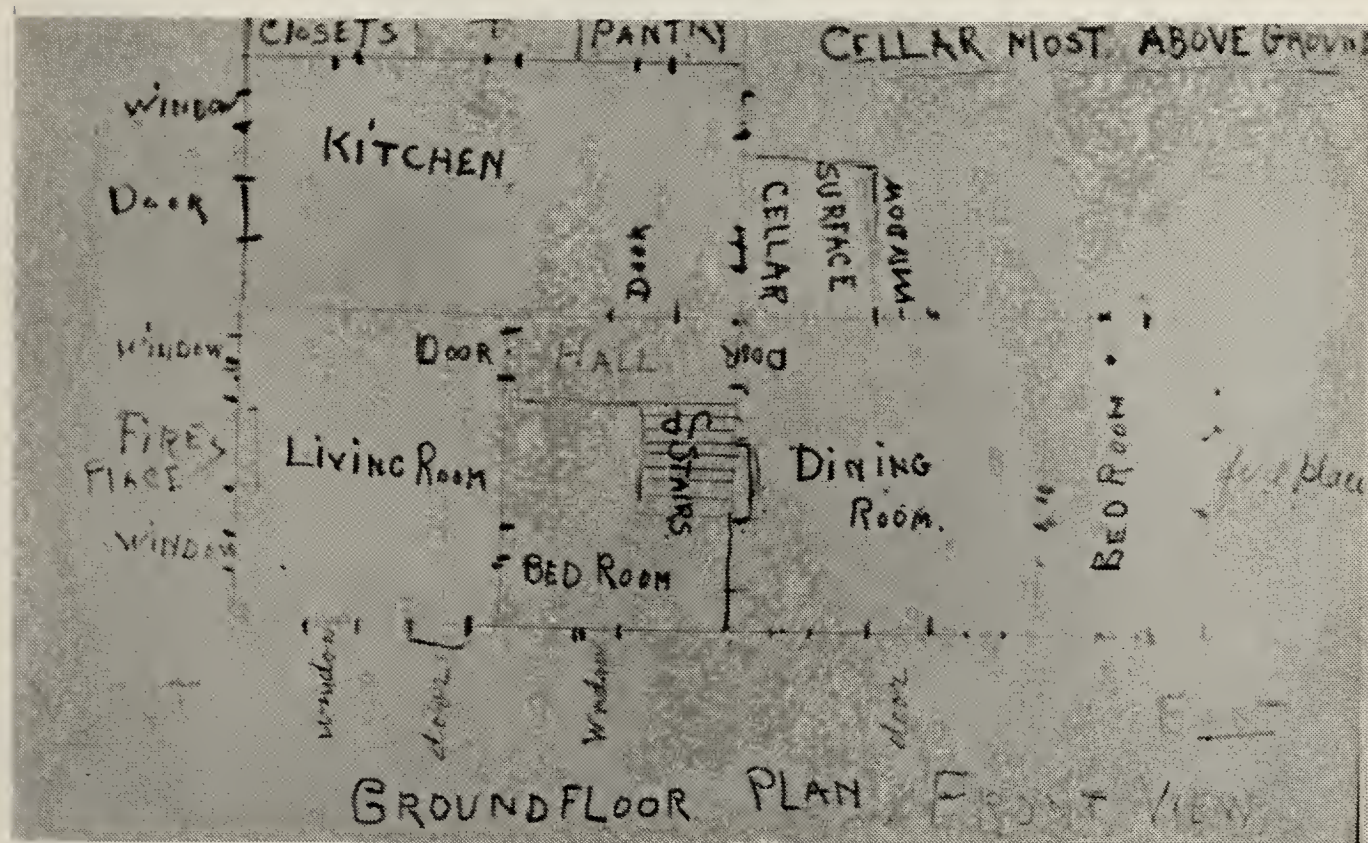 CLOSETS
PANTRY
CELLAR MOST ABOVE GROUN
WINDOW
KITCHEN
DOOR
DOOR
CELLAR
SURFACE
WINDOW
WINDOW
DOOR
HALL
DOOR
FIRE
PLACE
LIVING ROOM
UP STAIRS
DINING
ROOM.
BED ROOM
fire place
WINDOW
BED ROOM
window
door
window
door
EAST
GROUND FLOOR PLAN FRONT VIEW